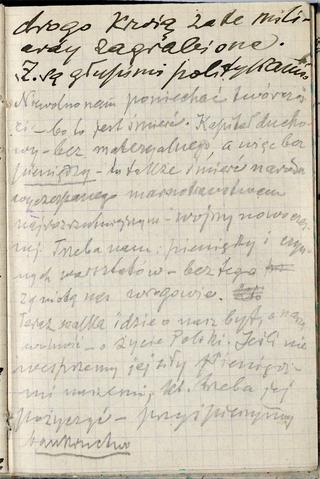 drogo krwią za te mili-
ardy zagrabione.
Z. są głupimi politykami
Nie wolno nam poniechać twórczo
ści – bo to jest śmierć. Kapitał ducho
wy – bez materyalnego, a więc bez
pieniędzy – to także śmierć narodu
wyczerpanego marnotrawstwem
wojny nowoczes
nej. Trzeba nam: pieniędzy i czyn
nych warsztatów – bez tego
zgniotą nas wrogowie.
Teraz walka idzie o nasz byt, o naszą
wolność – o życie Polski. Jeśli nie
wesprzemy jej siły pieniędz-
mi naszemi, kt. trzeba jej
pożyczyć – przyspieszymy
bankructwo